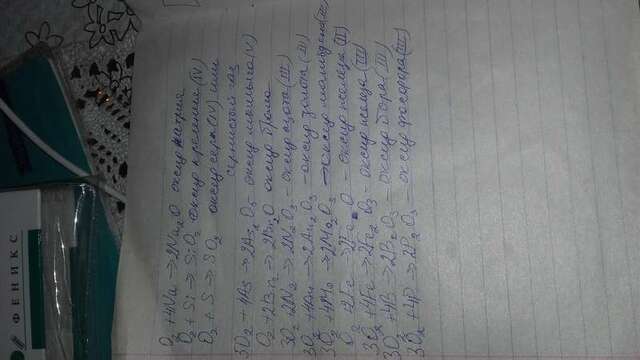 ФЕНИКС
O₂ + 4Na → 2Na₂O оксид натрия
O₂ + Si → SiO₂ оксид кремния (IV)
O₂ + S → SO₂ оксид серы (IV) или
сернистый газ
5O₂ + 4As → 2As₂O₅ - оксид мышьяка (V)
O₂ + 2Br₂ → 2Br₂O оксид брома
3O₂ + 2N₂ → 2N₂O₃ - оксид азота (III)
3O₂ + 4Au → 2Au₂O₃ - оксид золота (III)
3O₂ + 4Mo → 2Mo₂O₃ → оксид молибдена (III)
O₂ + 2Fe → 2FeO - оксид железа (II)
3O₂ + 4Fe → 2Fe₂O₃ - оксид железа (III)
3O₂ + 4B → 2B₂O₃ - оксид бора (III)
3O₂ + 4P → 2P₂O₃ - оксид фосфора (III)